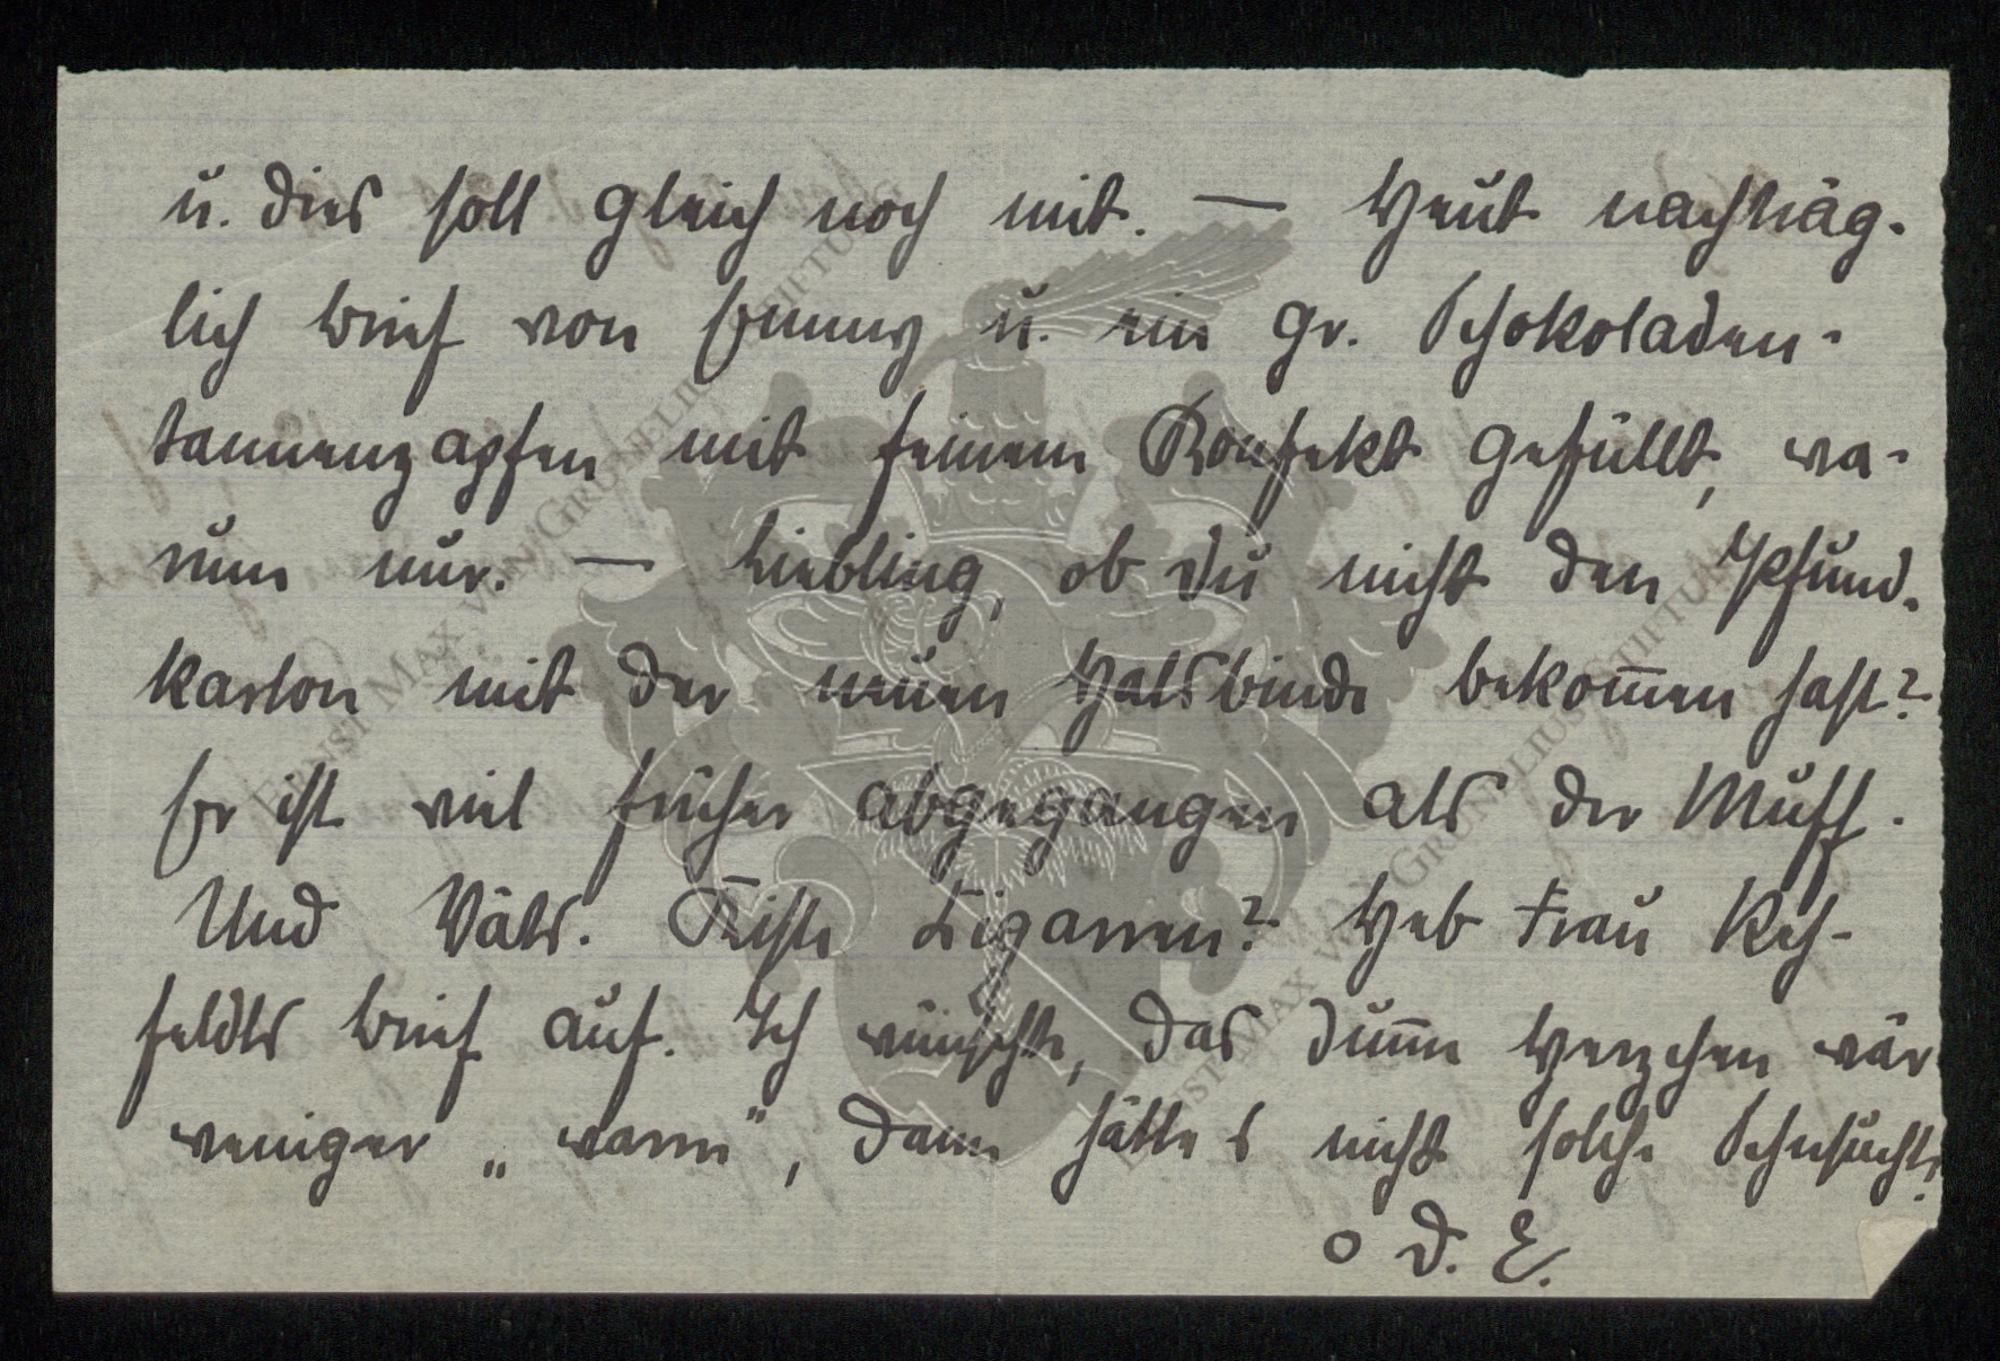 u. dies soll gleich noch mit. — Heut nachträg-
lich Brief von Emmy u. ein gr. Schokoladen-
tannenzapfen mit feinem Konfekt gefüllt, wa-
rum nur. — Liebling, ob Du nicht den Pfund-
karton mit der neuen Halsbinde bekom̅en hast?
Er ist viel früher abgegangen als der Muff.
Und Väts. Kiste Zigarren? Heb Frau Reh-
feldts Brief auf. Ich wünschte, das dum̅e Herzchen wär
weniger „warm", dann hätte s nicht solche Sehnsucht.
o D. E.
ERNST MAX VON GRUNELIUS STIFTUNG
ERNST MAX VON GRUNELIUS STIFTUNG